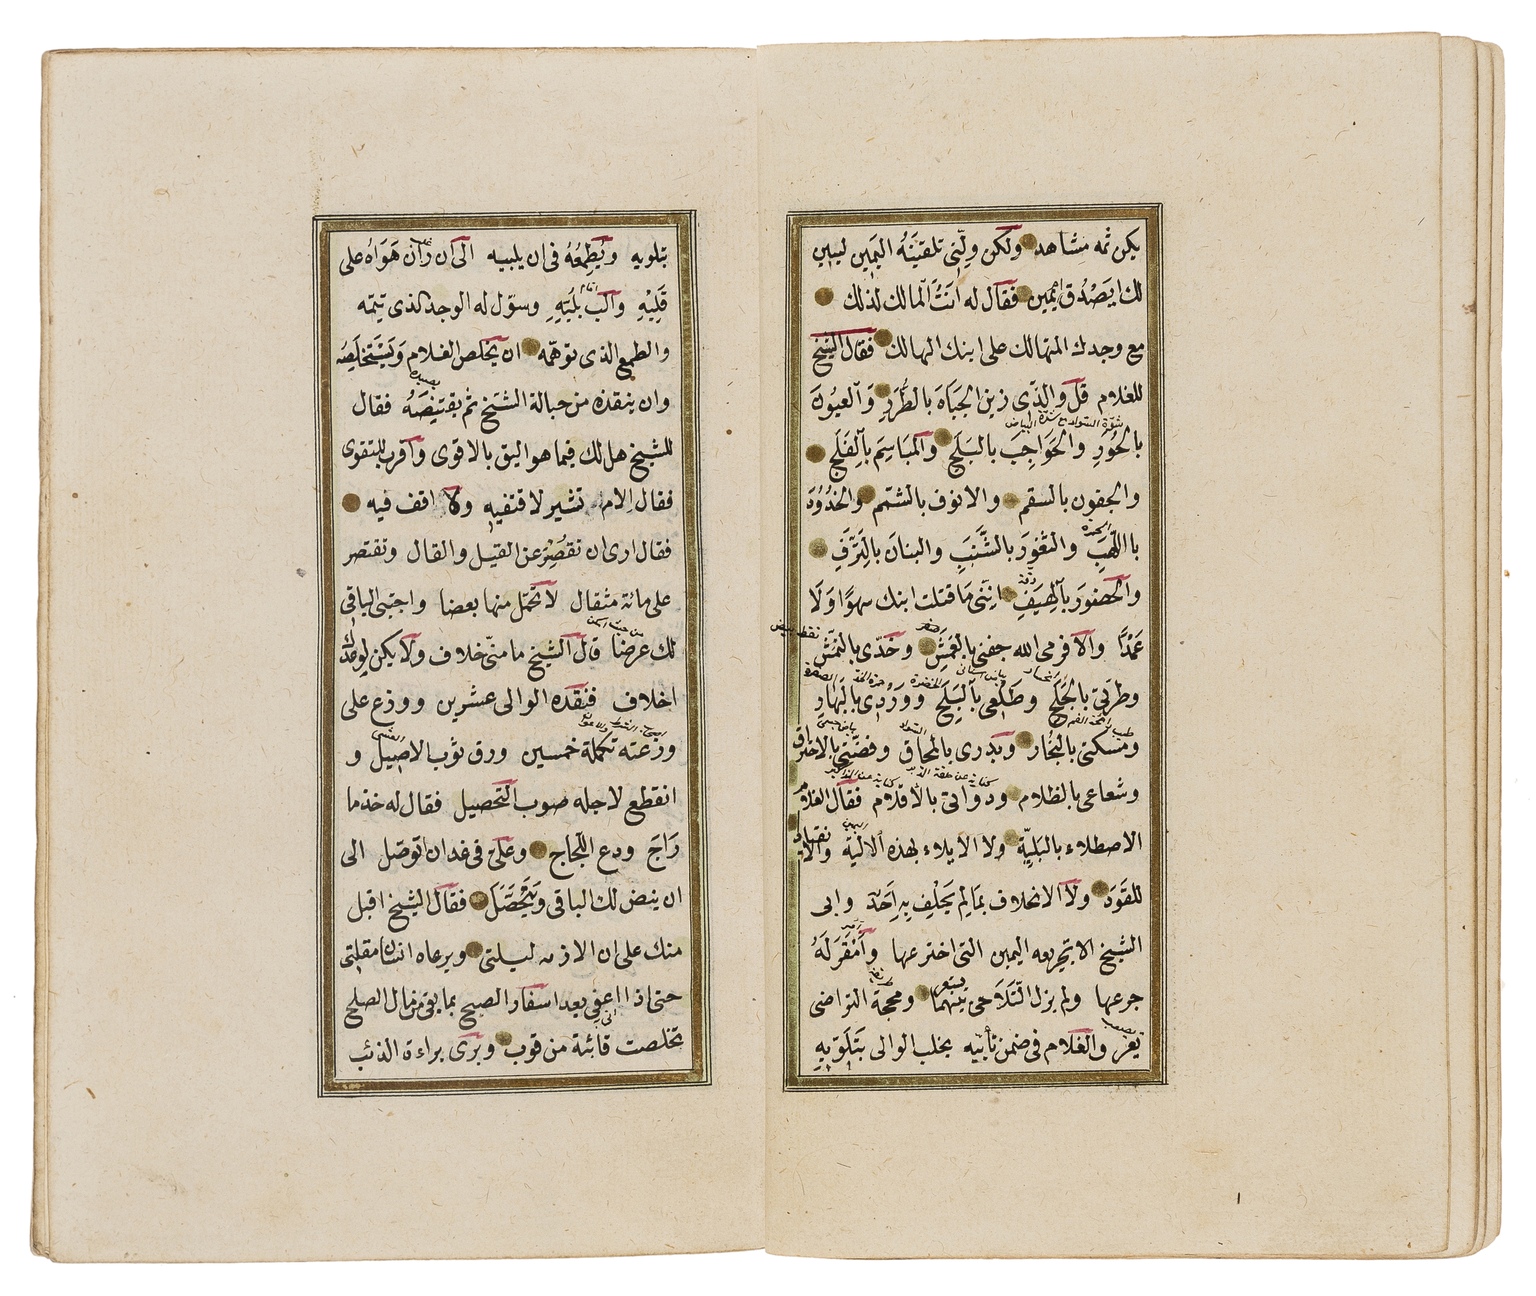 يكن ثمه مشاهد ولكن ولّني تلقينَهُ اليَمِين ليبين
لك ايَصْدُق ام يَمين فقال له انتَ المالك لذلك
مع وجدك المتهالك على ابنك الهالك فقال الشيخ
للغلام قل والذّى زين الجِبَاهَ بالطُّرَرِ وَالعيُونَ
بالحُوَرِ والحَوَاجِبَ بالبَلَجِ والمَبَاسِمَ بِالفَلَجِ
والجفون بالسقم والانوف بالشمم والخدُوُدَ
باللّهَبِ والثغورَ بالشَّنَبِ والبنانَ بالتَرَفِ
والخصُورَ بالهيَفِ اننّى مَا قتلت ابنك سهوًا وَلَا
عَمْدًا والا فرمى الله جفنى بالعَمَشِ وخَدّى بالنَّمَشِ
وطرتى بالجَلَحِ وطَلْعى بالبَلَحِ ووَرْدِى بالبَهَارِ
ومسكتى بالبُخَار وبَدرى بالمحاق وفضّتى بالاحتراق
وشعاعى بالظلام ودواتى بالاقلام فقال الغلام
الاصطلاء بالبَليّة ولا الايلاء بهذه الاليّة والانقياد
للقَوَدِ ولا الاتحلاف بمَا لم يَحْلِف بِهِ اَحَدٌ وابى
الشيخ الا تجريعه اليمين التى اخترعها وأَمْقَرَ لَهُ
جرعها ولم يزل التّلَاحى بَيْنَهمَا يستعر ومحجة التراضى
تعر والغلام فى ضمن تأبّيه يخلب الوالى بتَلَوّيهِ
بتلويه ويُطمِعُهُ فى ان يلبيه الى ان رَانَ هَوَاهُ على
قَلبِهِ والبّ بلُبّهِ وسوّل له الوجد الذى تيّمه
والطمع الذى توهّمه ان يخلص الغلام وَيَسْتَخلِصَه
وان ينقذه من حبالة الشيخ ثم يقتنِصَهُ فقال
للشيخ هل لك فيما هو اليق بالاقوى واقرب للتقوى
فقال الام تشير لاقتفيه ولا اقف فيه
فقال ارى ان تقصُرَ عن القيل والقال وتقتصر
على مائة مثقال لاتحمّل منها بعضا واجتبى الباقى
لك عرضا قال الشيخ ما منّى خلاف ولا يكن لوعدك
اخلاف فنقده الوالى عشرين ووزع على
وزعته تكملة خمسين ورق ثوب الاصيل و
انقطع لاجله صوب التحصيل فقال له خذ ما
رَاجَ ودع اللّجاج وعلىّ فى غد ان اتوصّل الى
ان ينض لك الباقى ويَتَحَصَّلَ فقال الشيخ اقبل
منك على ان الازمه ليلتى ويرعاه انسان مقلتى
حتى اذا اعفى بعد اسفار الصبح بما بقى من مال الصلح
تخلصت قائبة من قوب وبرئ براءة الذئب